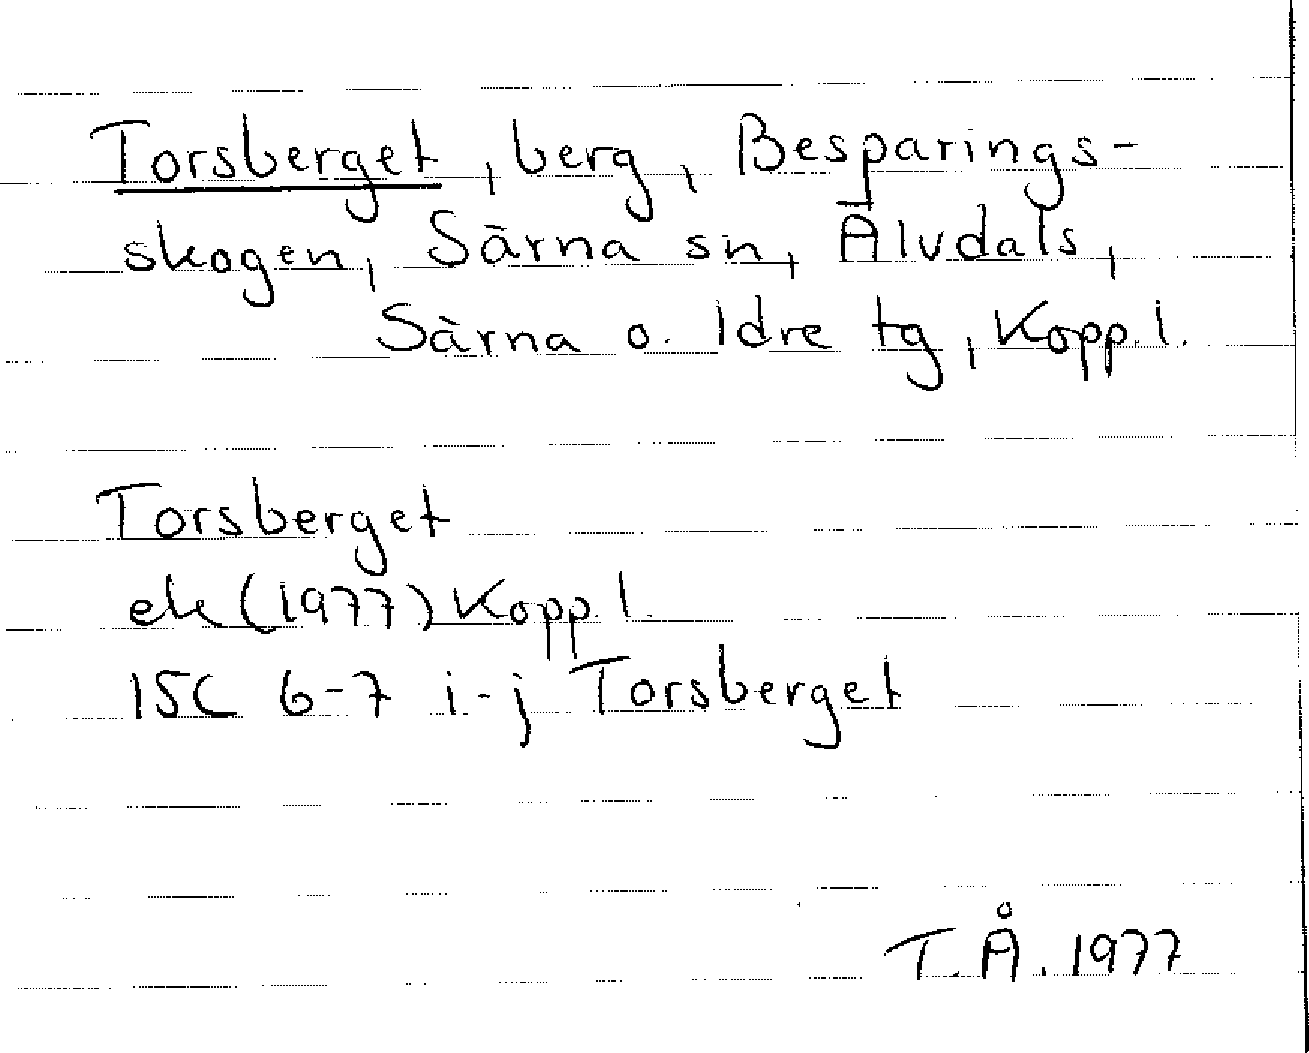 Torsberget, berg, Besparings-
skogen, Särna sn, Älvdals,
Särna o. Idre tg, Kopp. l.
Torsberget
ek (1977) Kopp. l.
15C 6-7 i-j Torsberget
T.Å. 1977